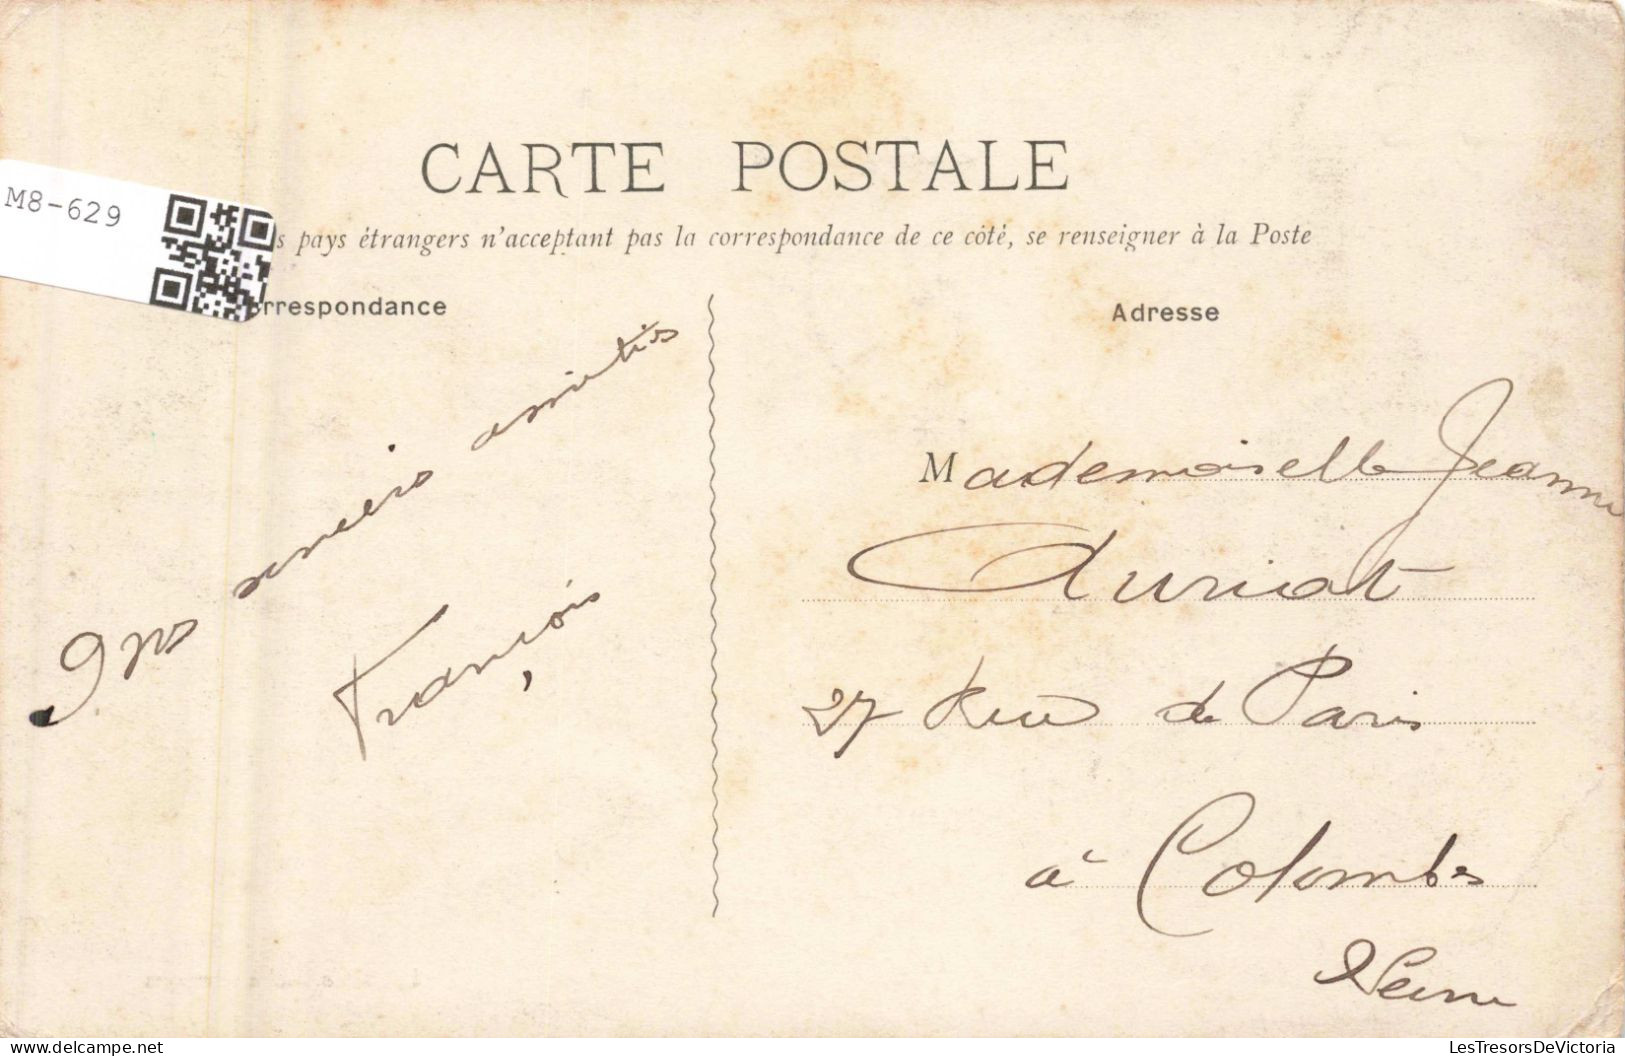 CARTE POSTALE
M8-629
s pays étrangers n'acceptant pas la correspondance de ce côté, se renseigner à la Poste
rrespondance
Adresse
sincères amitiés
François
Mademoiselle Jeanne
Auriat
27 Rue de Paris
à Colombes
Seine
delcampe.net
LesTresorsDeVictoria